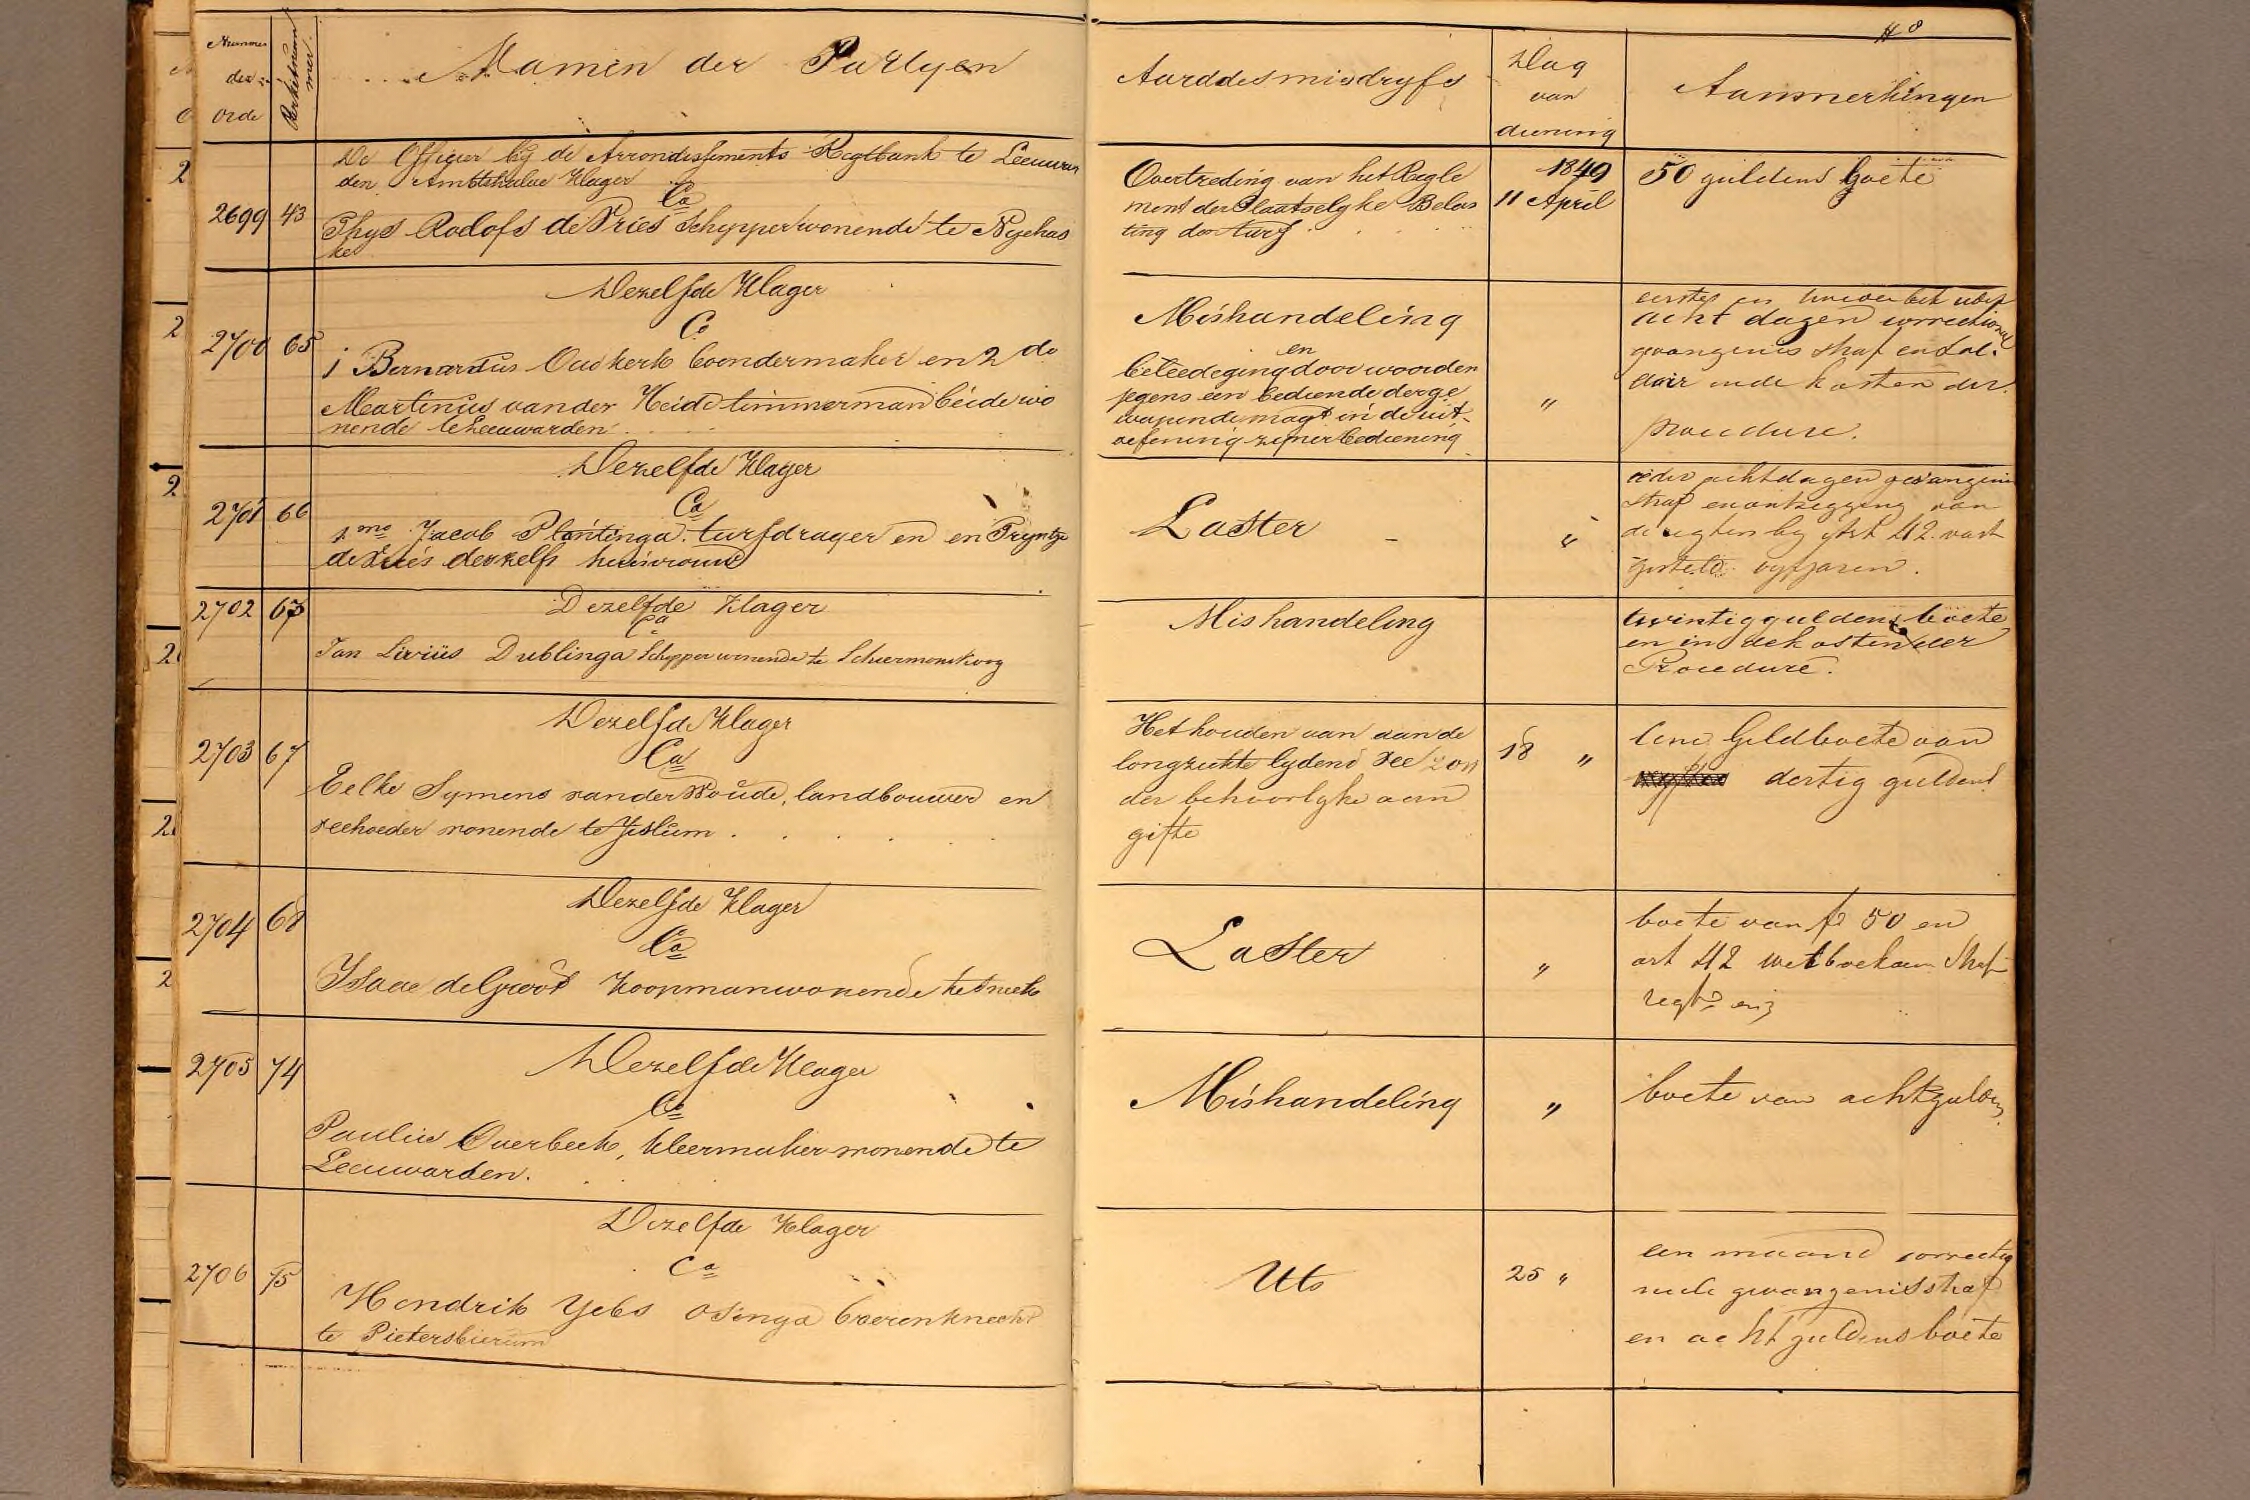 48
Nummer der Orde
Parketnummer.
Namen der Partyen
Aard des misdryfs
Dag van diening
Aanmerkingen
De Officier by de Arrondissements Regtbank te Leeuwar
den Ambtshalve Klager
Ca
2699 43
Thys Roelofs de Vries Schypper wonende te Nyehas
ke
Overtreding van het Regle
ment der Plaatselyke Belas
ting der turf
1849
11 April
50 guldens boete
Dezelfde Klager
Ca
2700 65
1 Bernardus Oudkerk Boondermaker en 2 do
Martinus van der Heide timmerman beide wo
nende te Leeuwarden
Mishandeling
en
beleediging door woorden
jegens een bediende der ge
wapende magt in de uit
oefening zyner bediening
"
eerste en
acht dagen correctionele
gevangenis straf en
in de kosten der
procedure.
Dezelfde Klager
Ca
2701 66
1mo Jacob Plantinga turfdrager en en Pryntje
de Vries deszelfs huisvrouw
Laster
"
ieder acht dagen gevangenis
straf en ontzegging van
de regten by Art 42 vast
gesteld vyf jaren.
2702 63
Dezelfde Klager
Ca
Jan Liviüs Dublinga Schypper wonende te Schiermonikoog
Mishandeling
twintig guldens boete
en in de kosten der
Procedure.
Dezelfde Klager
2703 67
Ca
Eelke Symens van der Woude, landbouwer en
veehoeder wonende te Jislum
Het houden van aan de
longziekte lydend vee zon
der behoorlyke aan
gifte
18 "
Eene Geldboete van
dertig guldens
Dezelfde Klager
2704 68
Ca
Isaac de Groot Koopman wonende te Sneek
Laster
"
boete van f 50 en
art 42 wetboek van Straf
regt enz
Dezelfde Klager
2705 74
Ca
Paulus Overbeek, kleermaker wonende te
Leeuwarden.
Mishandeling
"
boete van acht gulden
Dezelfde Klager
Ca
2706 75
Hendrik Yebs Osinga boerenknecht
te Pietersbierum
Uts
25 "
een maand correctio
nele gevangenisstraf
en acht guldens boete